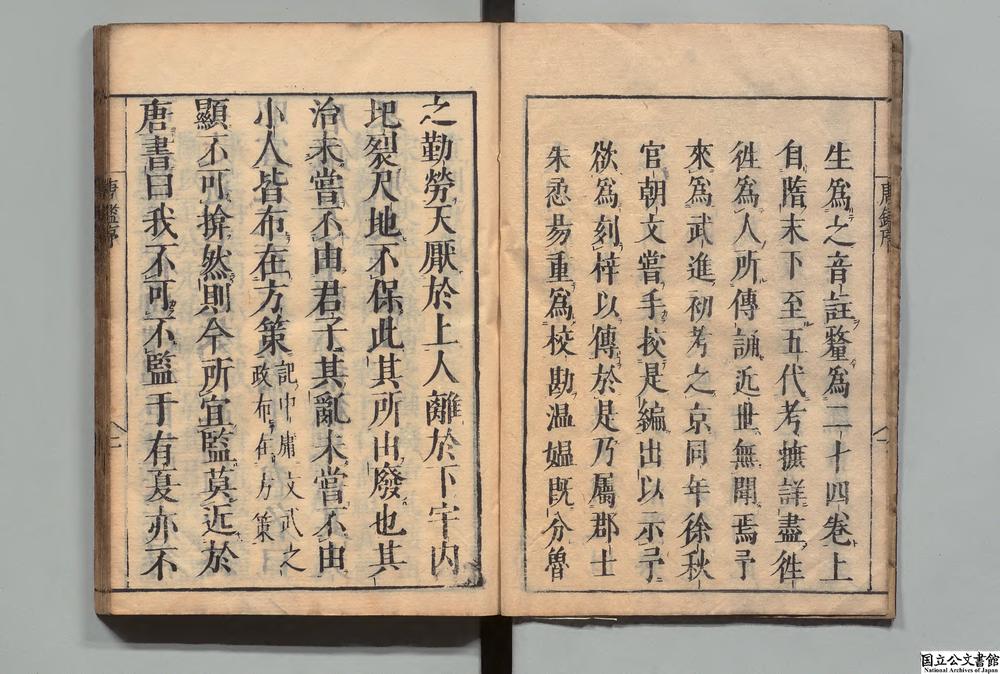 生爲之音註釐爲二十四卷上
自隋末下至五代考摭詳盡徃
徃爲人所傳誦近世無聞焉予
來爲武進初考之京同年徐秋
官朝文嘗手挍是編出以示予
欲爲刻梓以傳於是乃屬郡士
朱㤅昜重爲校勘温媪旣分魯
唐鑑序
之勤勞天厭於上人離於下宇內
圯裂尺地不保此其所由廢也其
治未嘗不由君子其亂未嘗不由
小人皆布在方策記中庸文武之政布在方策
顯不可揜然則今所宜監莫近於
唐書曰我不可不監于有夏亦不
唐鑑序
国立公文書館
National Archives of Japan